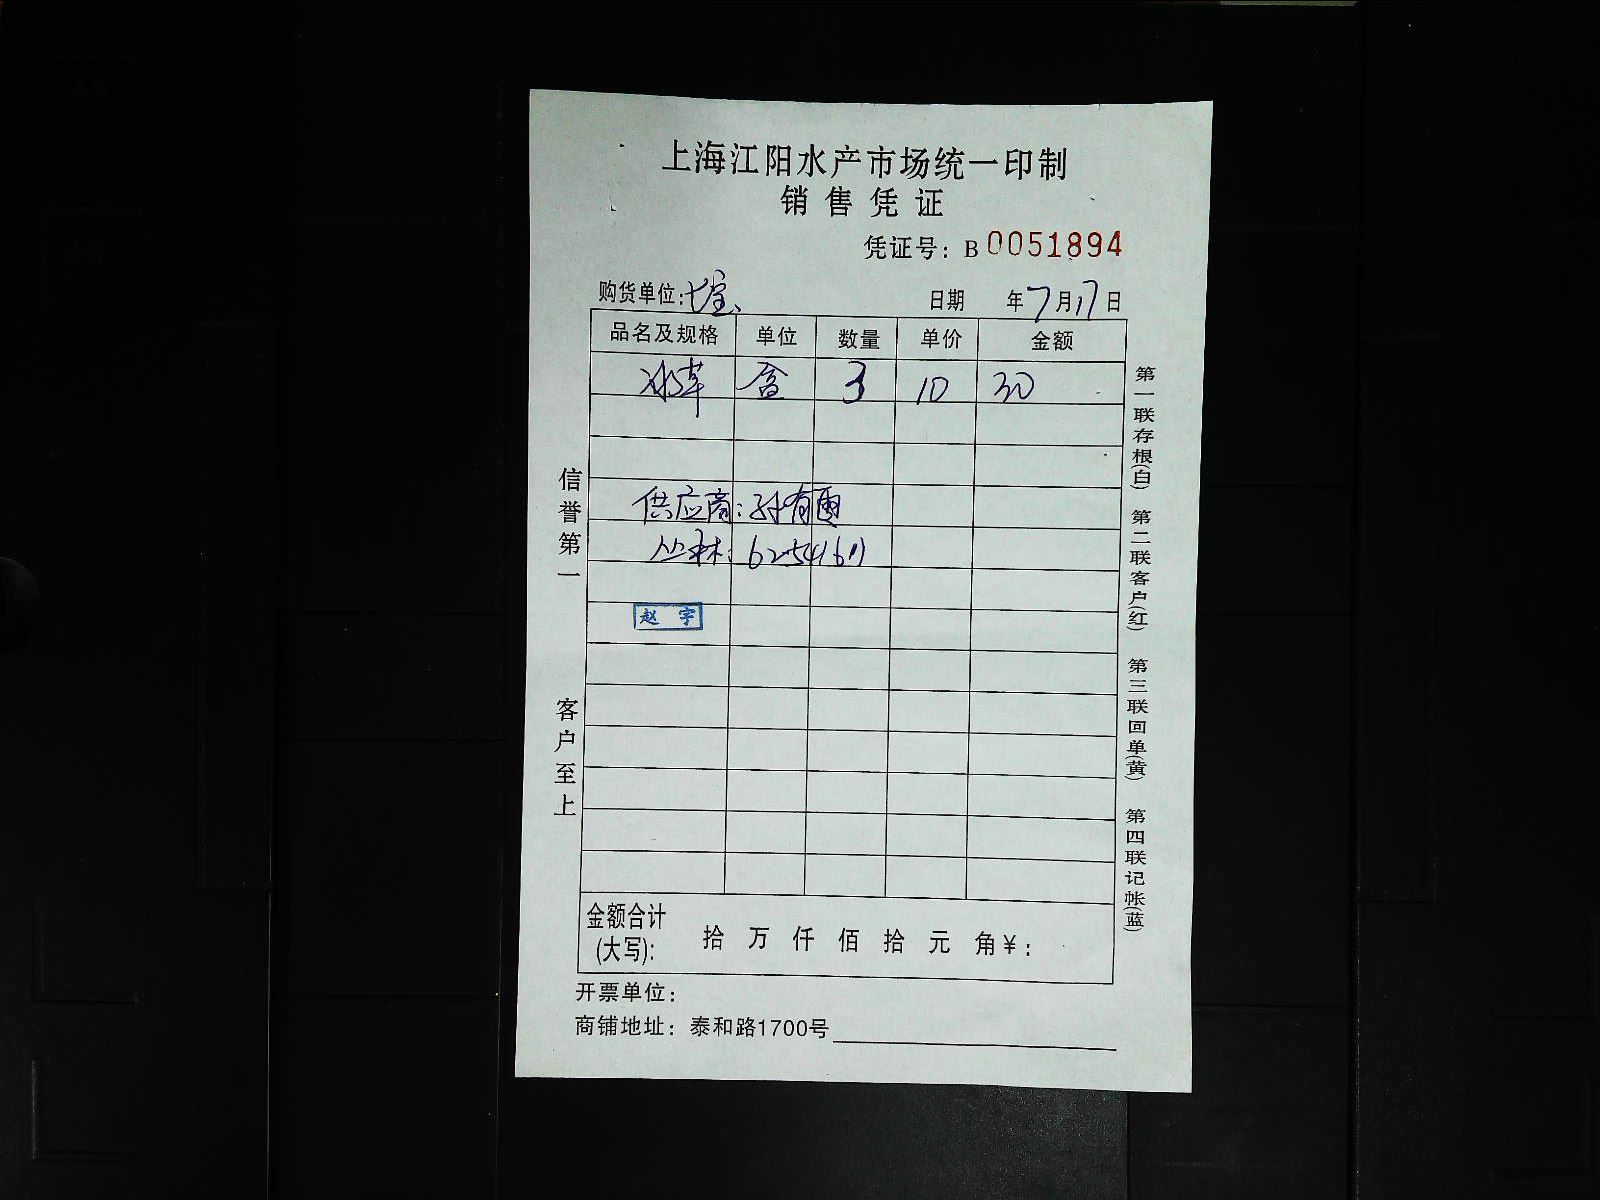 上海江阳水产市场统一印制
销售凭证
凭证号：B 0051894
购货单位：七宝、 日期 年7月17日
品名及规格 单位 数量 单价 金额
冰草 盒 3 10 30
供应商：孙有
丛林：62541611
赵宇
金额合计(大写)： 拾 万 仟 佰 拾 元 角￥：
开票单位：
商铺地址：泰和路1700号
信誉第一
客户至上
第一联存根(白)
第二联客户(红)
第三联回单(黄)
第四联记帐(蓝)